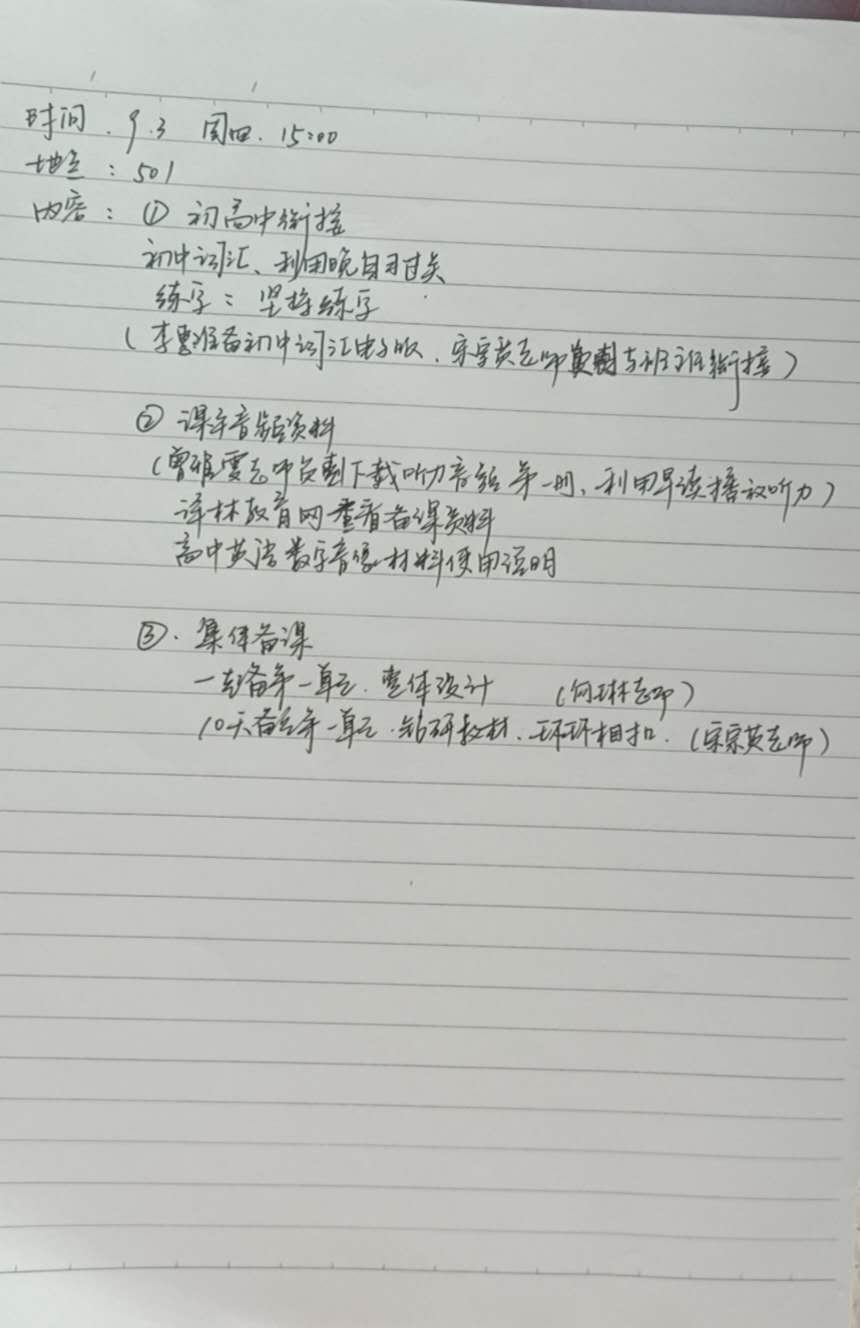 时间．9.3 周四．15:00
地点：501
内容：① 初高中衔接
初中词汇、利用晚自习过关
练字：坚持练字
（李 准备初中词汇电子版．宋宗英老师负责与班主任衔接）
② 课本音频资料
（曾雅 老师负责下载听力音频 第一册，利用早读播放听力）
译林教育网查看备课资料
高中英语数字音像材料使用说明
③．集体备课
备第一单元．整体设计 （何琳老师）
10天备 第一单元．钻研教材．环环相扣．（宋宗英老师）